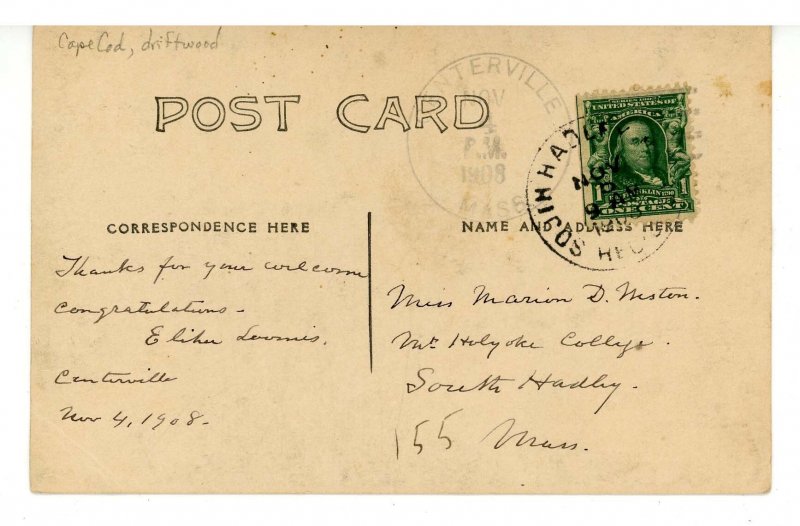 Cape Cod, driftwood
POST CARD
CENTERVILLE
NOV
4
P.M.
1908
MASS
SERIES 1902
UNITED STATES OF
AMERICA
FRANKLIN 1790
1 1
POSTAGE
ONE CENT
SOUTH HADLEY
NOV
9 AM
1908
REC'D
CORRESPONDENCE HERE
NAME AND ADDRESS HERE
Thanks for your welcome
congratulations -
Elihu Loomis.
Centerville
Nov 4, 1908.
Miss Marion D. Weston.
Mt Holyoke College.
South Hadley.
155 Mass.